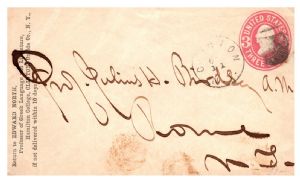 Return to EDWARD NORTH,
Professor of Greek Language and Literature,
Hamilton College, Clinton, Oneida Co., N. Y.,
if not delivered within 10 days.
UNITED STATES
THREE
Prof. Julius H.
A.M.
Rome
N. Y.